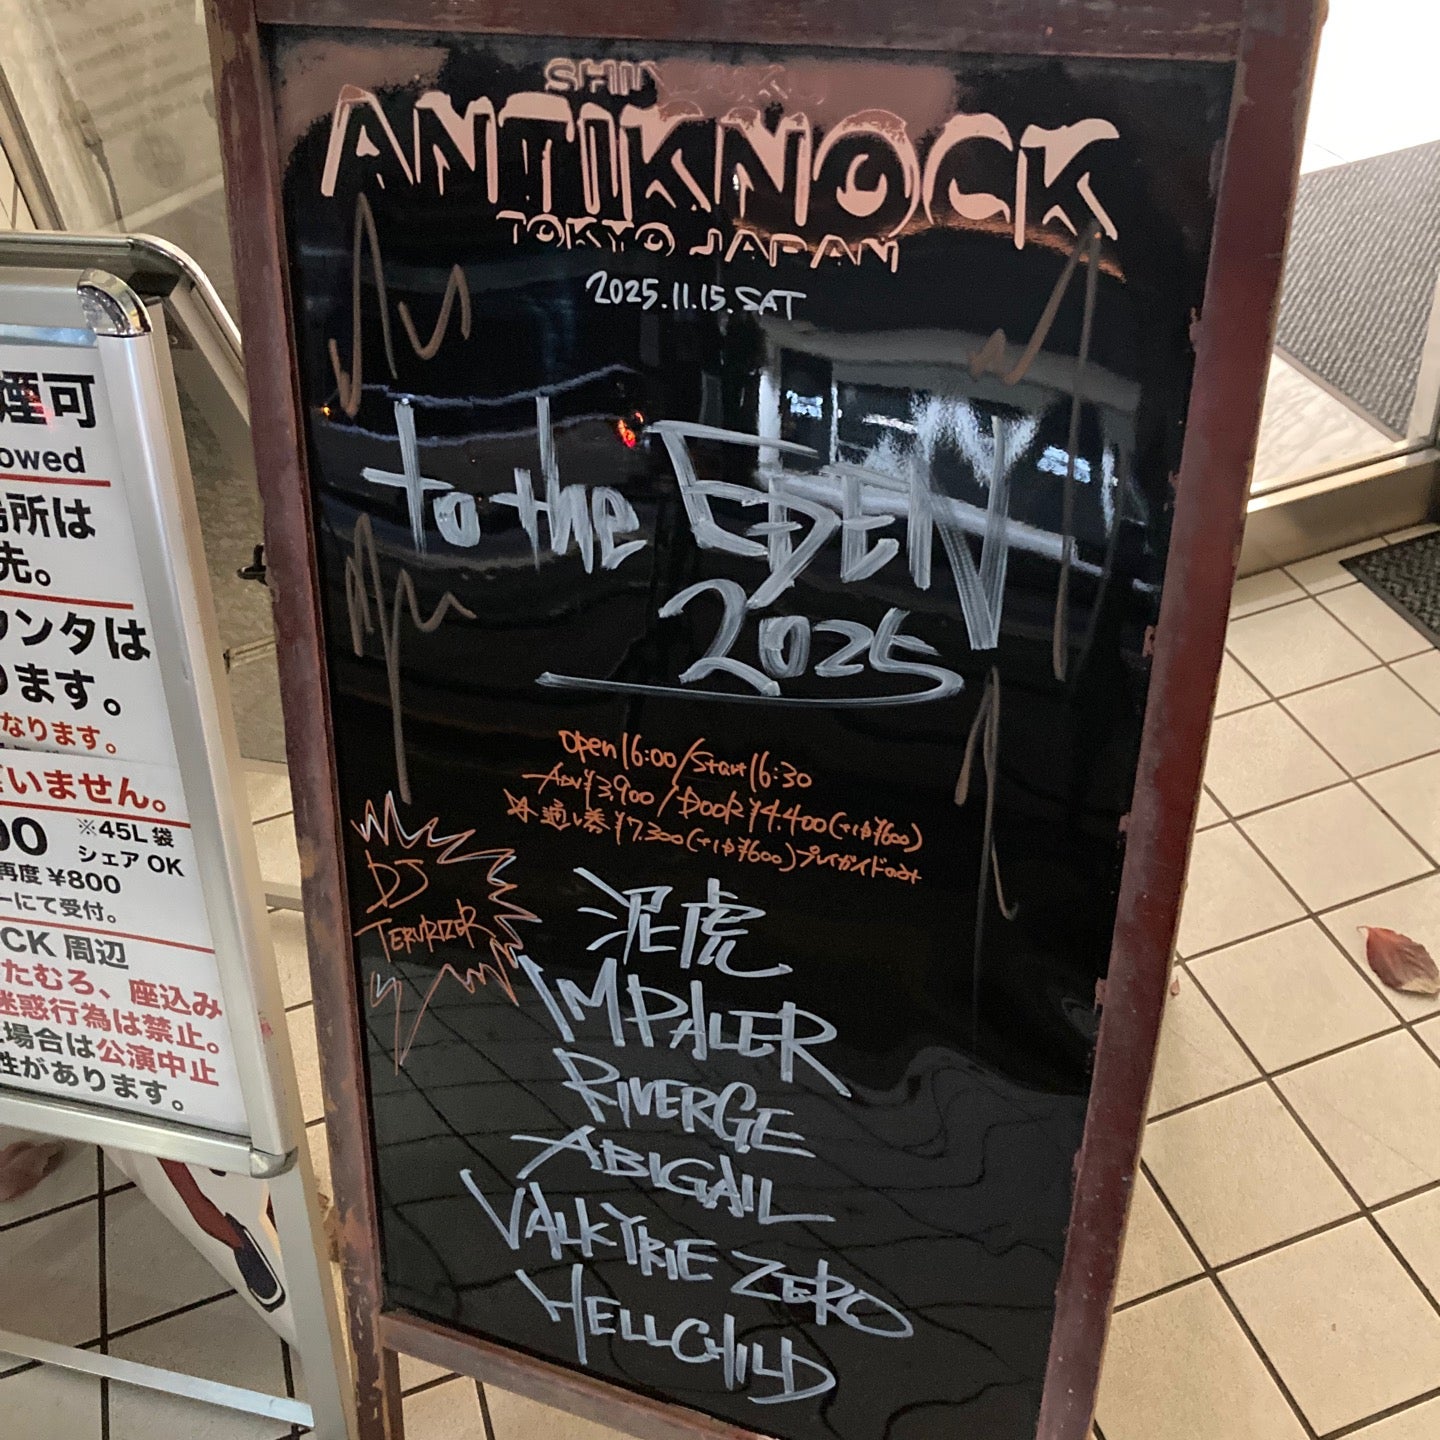 煙可
owed
場所は
先。
ウンタは
ります。
なります。
ざいません。
00 ※45L袋
シェア OK
再度 ¥800
ーにて受付。
CK 周辺
たむろ、座込み
迷惑行為は禁止。
場合は公演中止
性があります。
SHINJUKU
ANTIKNOCK
TOKYO JAPAN
2025.11.15.SAT
to the EDEN
2025
Open 16:00/Start 16:30
ADV ¥3,900 / DOOR ¥4,400(+1D¥600)
通し券 ¥7,300(+1D¥600)プレイガイドのみ
DJ
TERURIZER
泥虎
IMPALER
RIVERGE
ABIGAIL
VALKYRIE ZERO
HELLCHILD